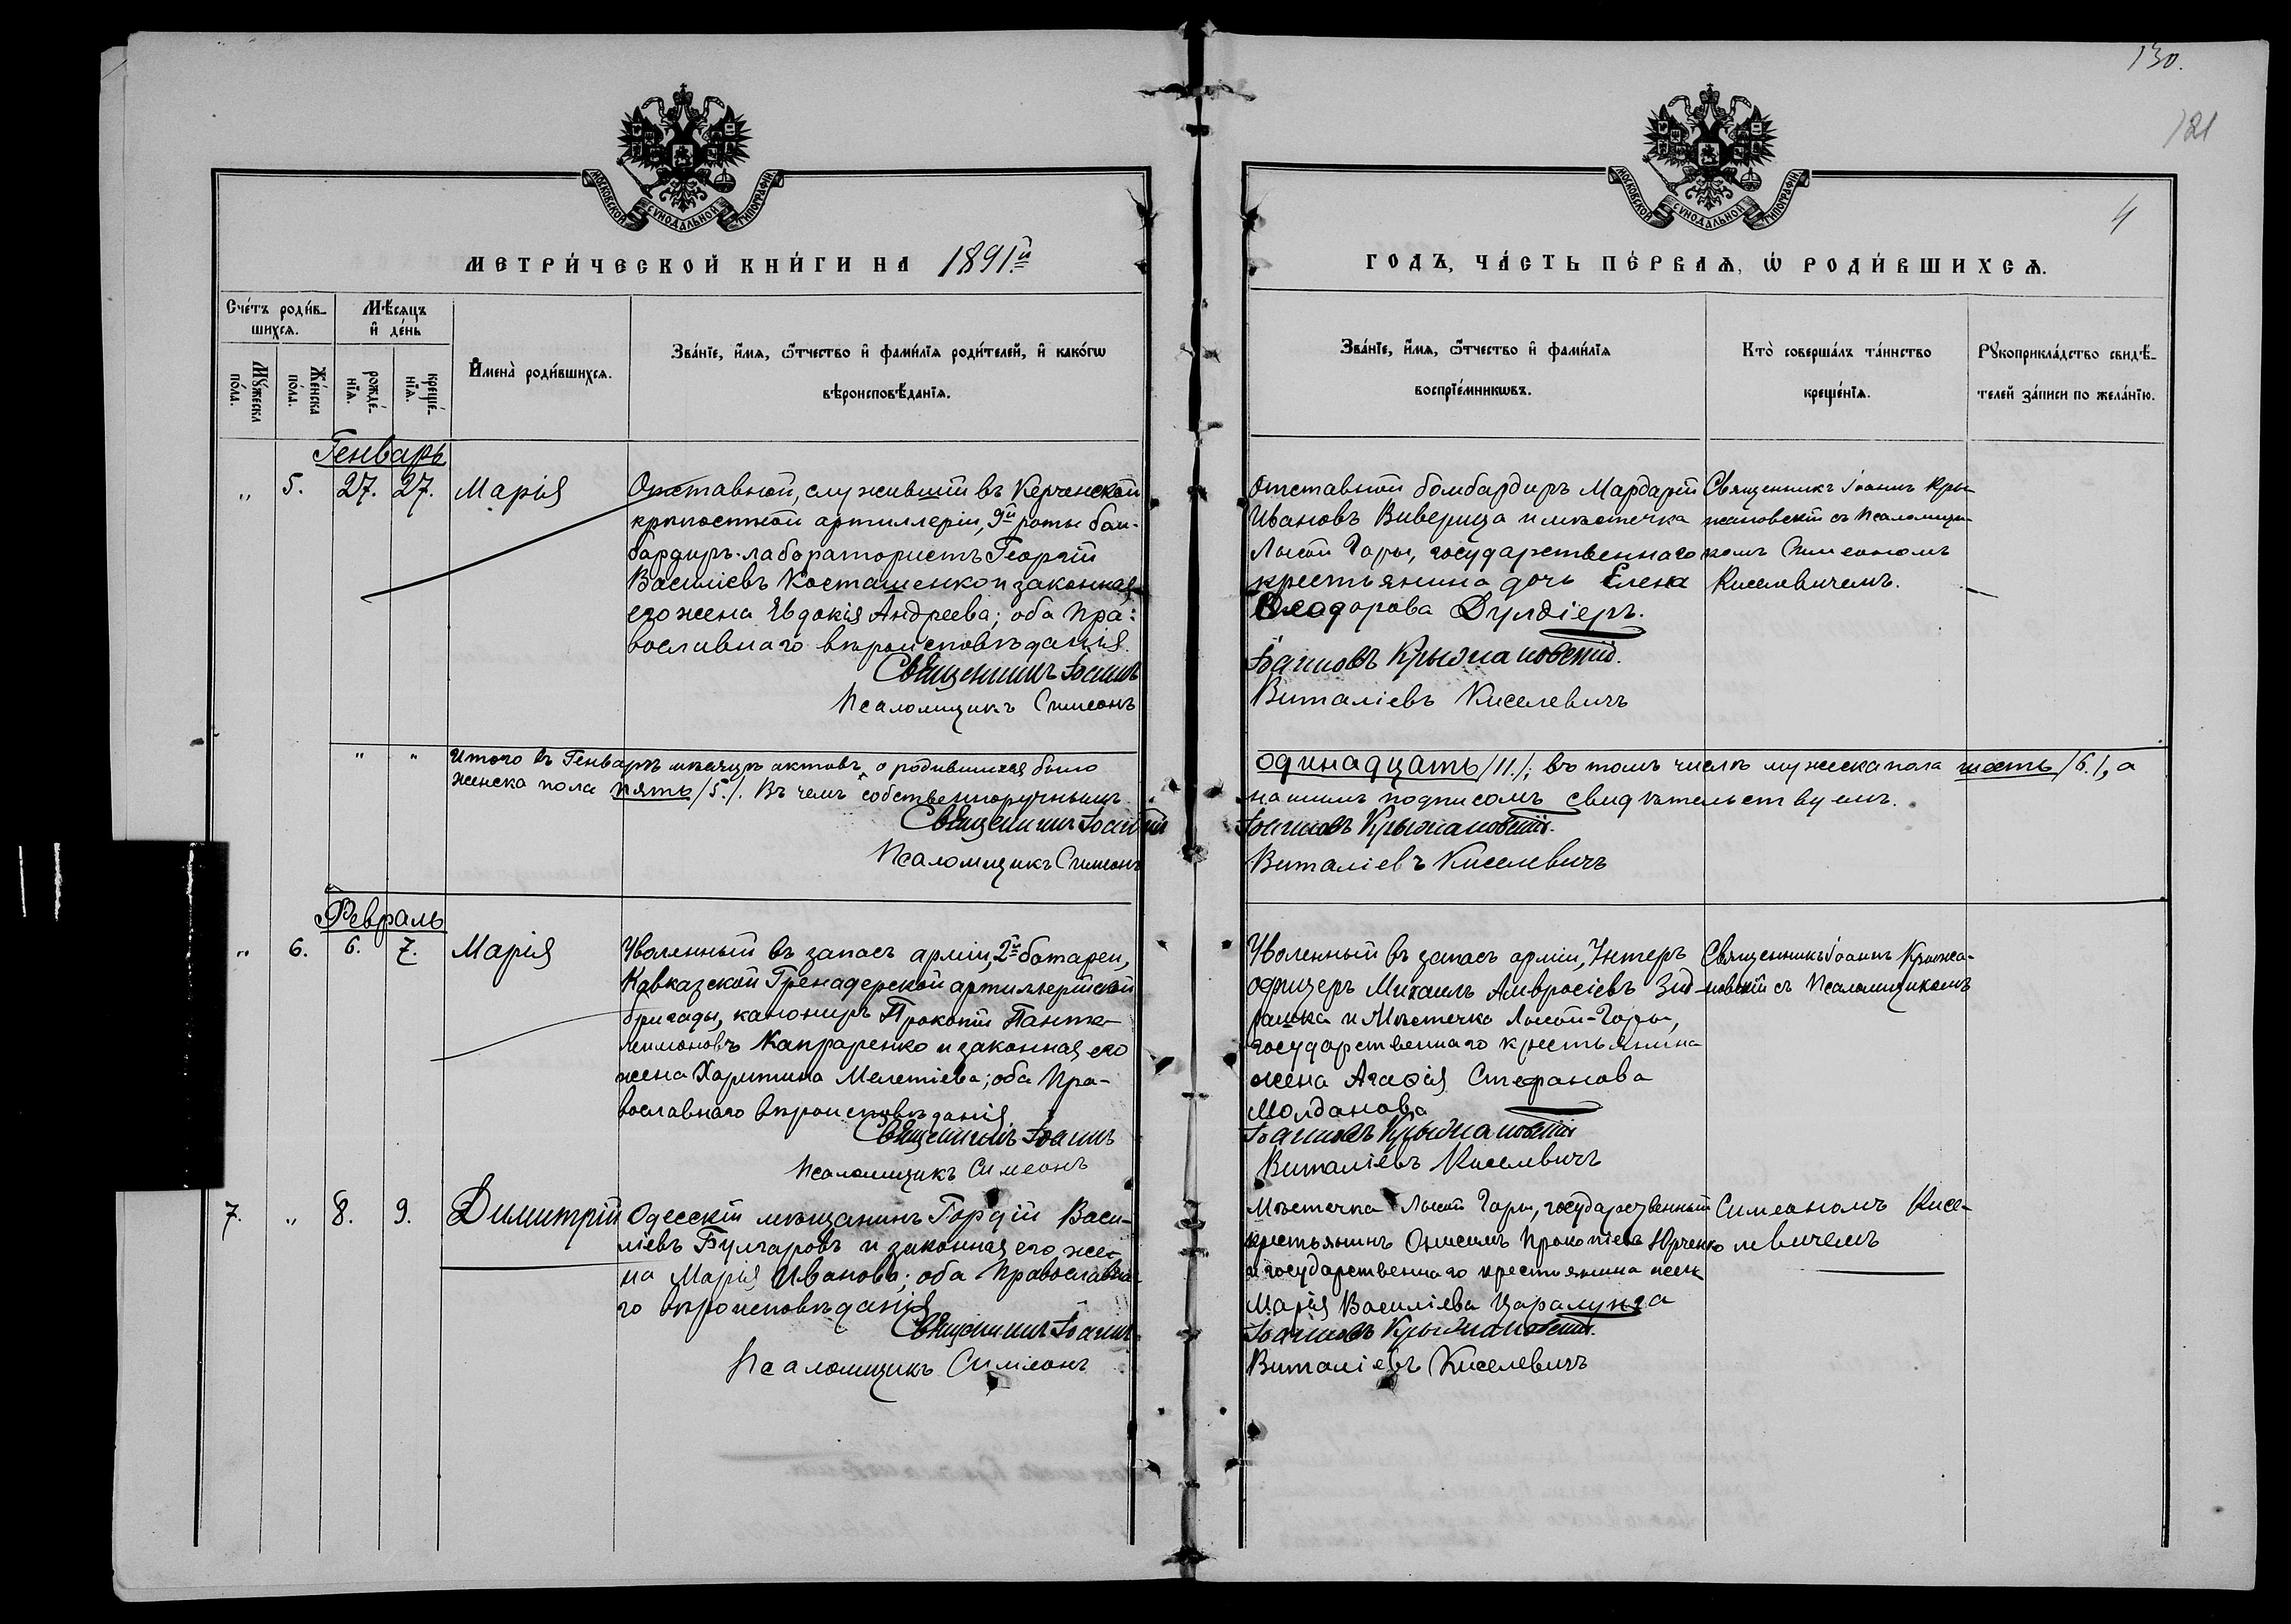 130.
121
4
МОСКОВСКОЙ СѴНОДАЛЬНОЙ ТИПОГРАФІИ
МОСКОВСКОЙ СѴНОДАЛЬНОЙ ТИПОГРАФІИ
МЕТРИ́ЧЕСКОЙ КНИ́ГИ НА 1891й
ГОДЪ, ЧА́СТЬ ПЕ́РВАѦ, Ѡ РОДИ́ВШИХСѦ.
Сче́тъ роди́в-
шихсѧ.
Мѣ́сѧцъ
и҆ де́нь
Мꙋ́жеска
по́ла.
Же́нска
по́ла.
рожде́-
нїѧ.
креще́-
нїѧ.
И҆мена̀ роди́вшихсѧ.
Зва́нїе, и҆́мѧ, ѻ҆́тчество и҆ фами́лїѧ роди́телей, и҆ како́гѡ
вѣроисповѣ́данїѧ.
Зва́нїе, и҆́мѧ, ѻ҆́тчество и҆ фами́лїѧ
воспрїе́мникѡвъ.
Кто̀ соверша́лъ та́инство
креще́нїѧ.
Рꙋкоприкла́дство свидѣ́-
телей за́писи по жела́нїю.
Генварь
„ 5. 27. 27. Марія
Отставной, служившій въ Керченской
крѣпостной артиллеріи, 9й роты бом-
бардиръ-лаборатористъ Георгій
Василіевъ Косташенко и законная
его жена Евдокія Андреева; оба пра-
вославнаго вѣроисповѣданія.
Священникъ Іоаннъ
Псаломщикъ Симеонъ
Отставной бомбардиръ Мардарій
Ивановъ Виверица и мѣстечка
Лысой Горы, государственнаго
крестьянина дочь Елена
Ѳеодорова Дулдіеръ.
Іоанновъ Крыжановскій.
Виталіевъ Киселевичъ
Священникъ Іоаннъ Кры-
жановскій съ Псаломщи-
комъ Симеономъ
Киселевичемъ.
„ „ Итого въ Генварѣ мѣсяцѣ актовъ о родившихся было одинадцать /11./; въ томъ числѣ мужеска пола шесть /6./, а
женска пола пять /5./. Въ чемъ собственноручнымъ нашимъ подписомъ свидѣтельствуемъ.
Священникъ Іоаннъ Іоанновъ Крыжановскій.
Псаломщикъ Симеонъ Виталіевъ Киселевичъ
Февраль
„ 6. 6. 7. Марія
Уволенный въ запасъ арміи, 2й батареи,
Кавказской Гренадерской артиллерійской
бригады, канониръ Прокопій Панте-
леимоновъ Капраренко и законная его
жена Харитина Мелетіева; оба Пра-
вославнаго вѣроисповѣданія
Священникъ Іоаннъ
Псаломщикъ Симеонъ
Уволенный въ запасъ арміи, Унтеръ
офицеръ Михаилъ Амвросіевъ Зид-
рашка и Мѣстечка Лысой-Горы,
государственнаго крестьянина
жена Агафія Стефанова
Молданова
Іоанновъ Крыжановскій
Виталіевъ Киселевичъ
Священникъ Іоаннъ Крыжа-
новскій съ Псаломщикомъ
7. „ 8. 9. Димитрій
Одесскій мѣщанинъ Гордій Васи-
ліевъ Булгаровъ и законная его же-
на Марія Иванова; оба Православна-
го вѣроисповѣданія
Священникъ Іоаннъ
Псаломщикъ Симеонъ
Мѣстечка Лысой Горы, государственный
крестьянинъ Онисимъ Прокопіевъ Юрченко
и государственнаго крестьянина жена
Марія Василіева Царалунга
Іоанновъ Крыжановскій.
Виталіевъ Киселевичъ
Симеономъ Кисе-
левичемъ